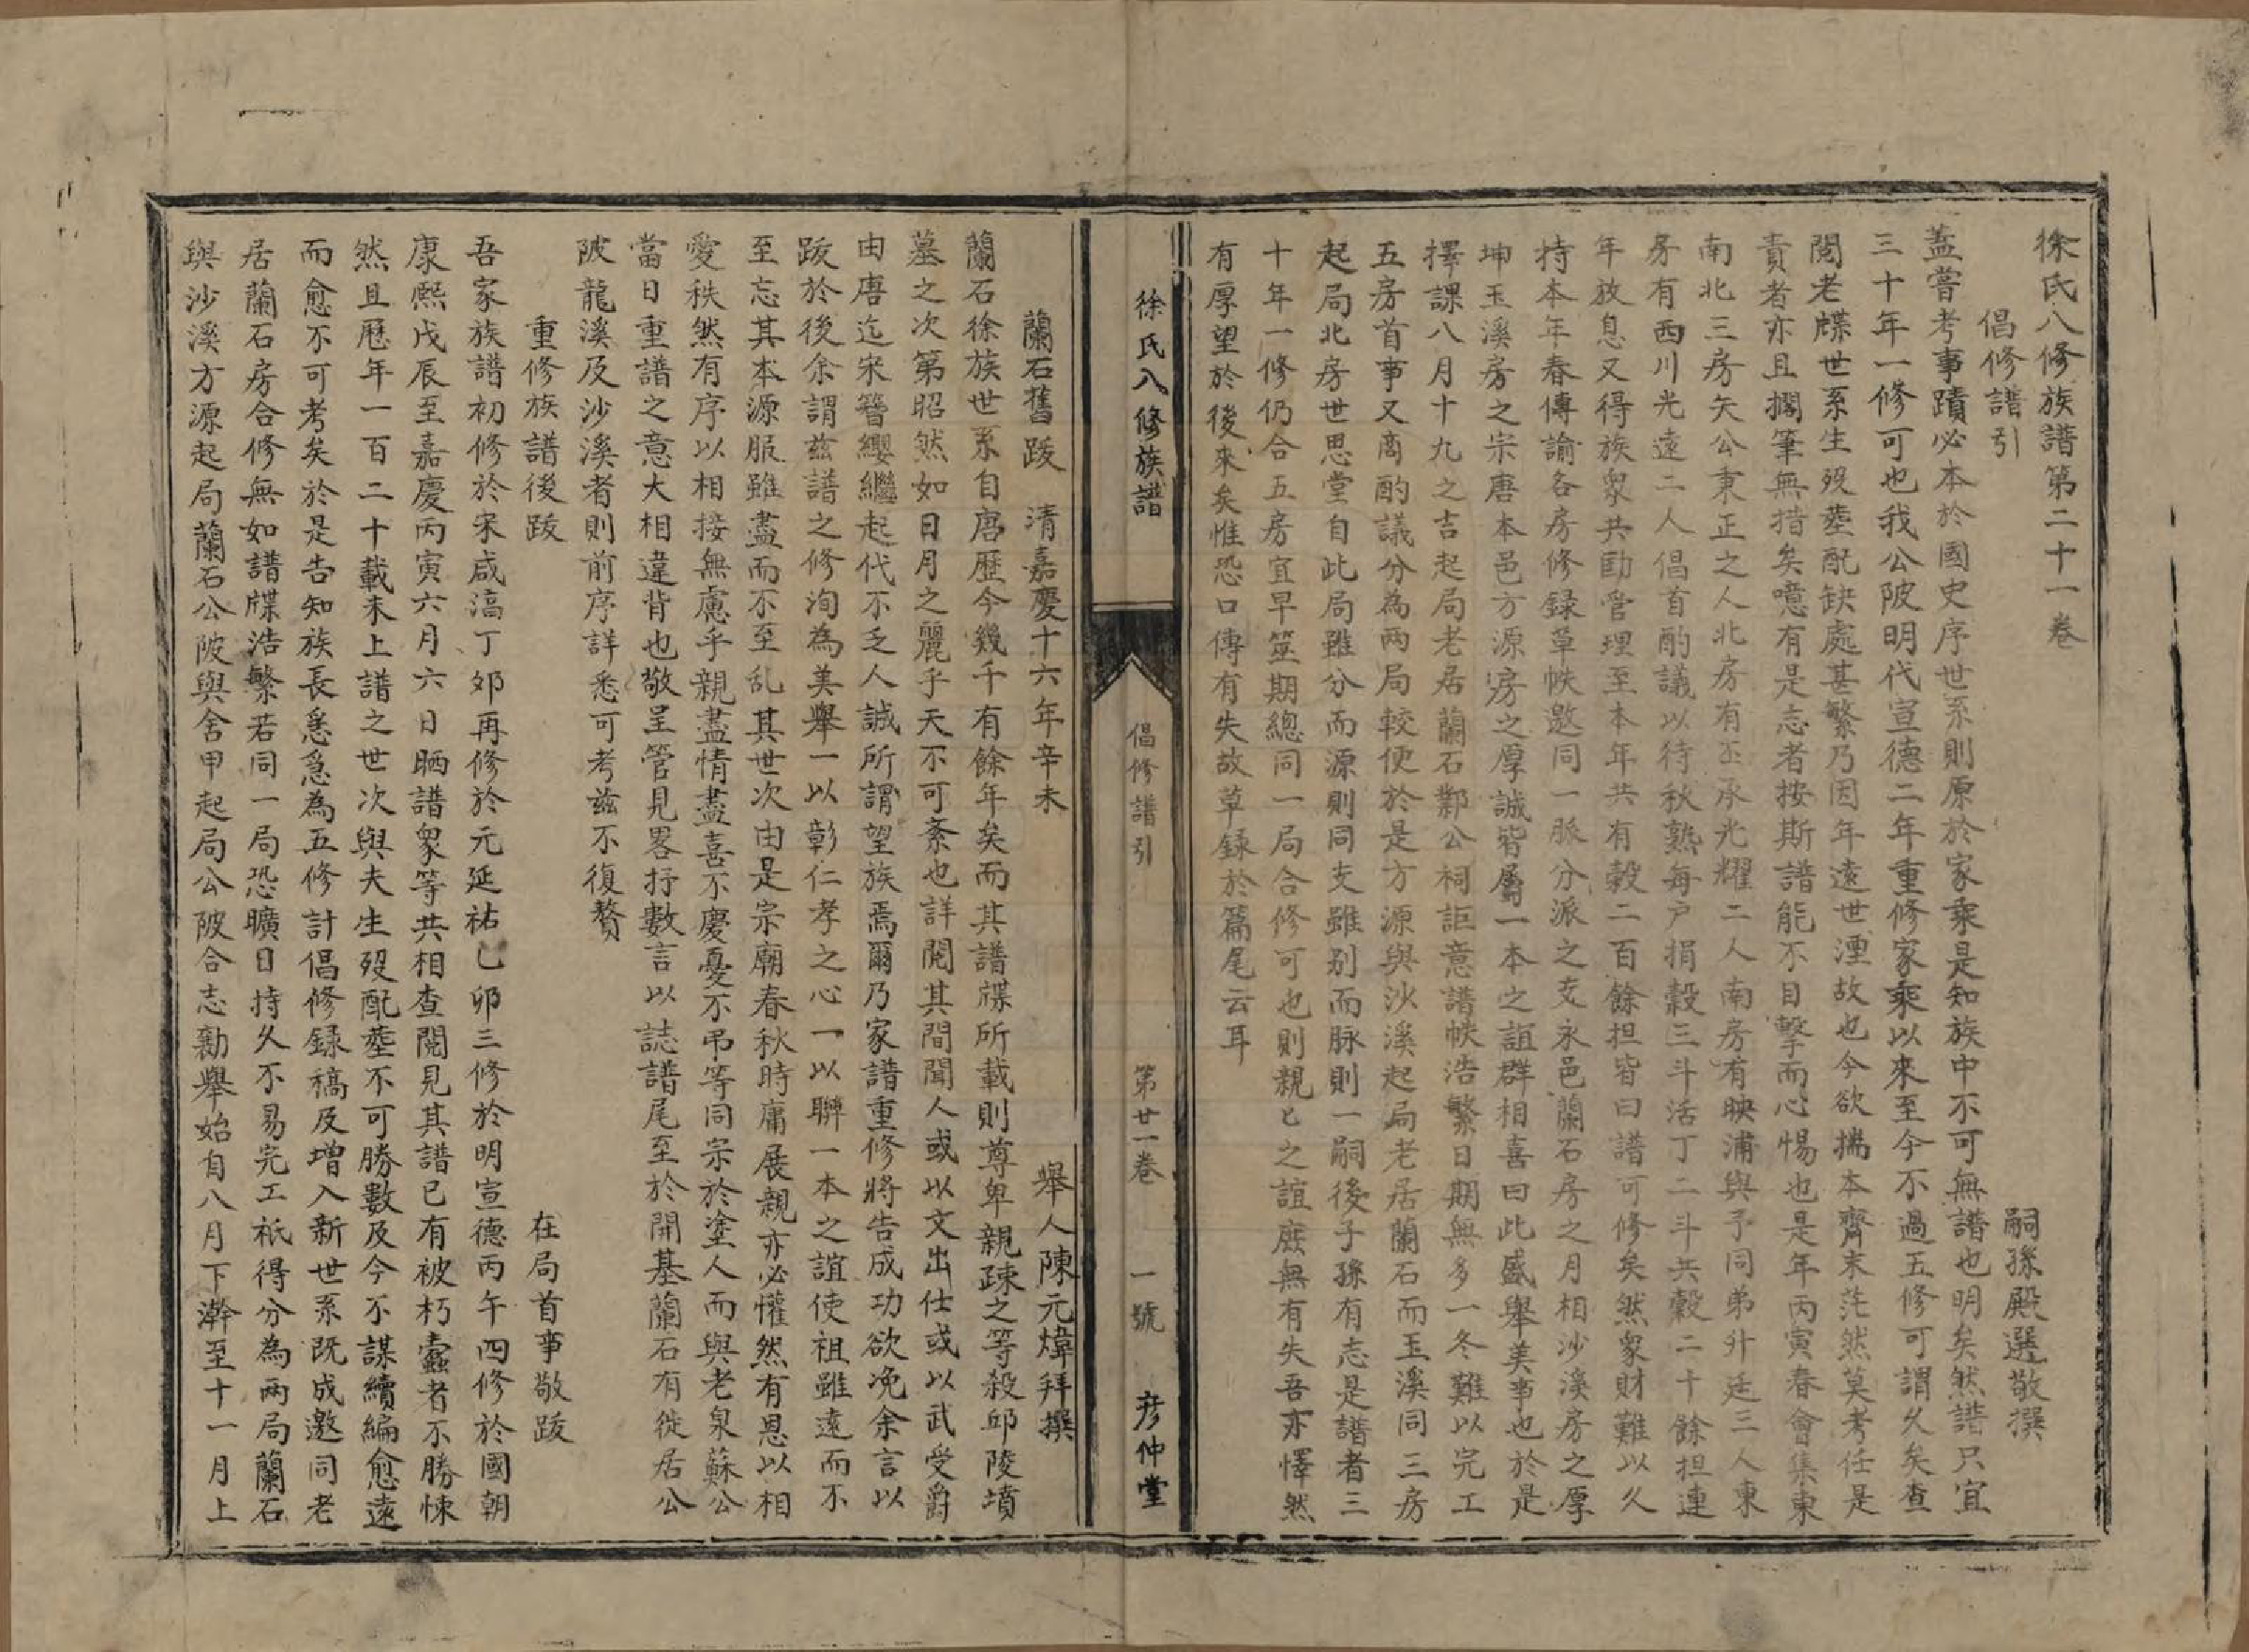 徐氏八修族譜第二十一卷
倡修譜引
嗣孫殿選敬撰
蓋嘗考事蹟必本於國史序世系則原於家乘是知族中不可無譜也明矣然譜只宜
三十年一修可也我公陂明代宣德二年重修家乘以來至今不過五修可謂久矣查
閱老牒世系生殁塟配缺處甚繁乃因年遠世湮故也今欲揣本齊末茫然莫考任是
責者亦且擱筆無措矣噫有是志者按斯譜能不目擊而心惕也是年丙寅春會集東
南北三房矢公秉正之人北房有丕承光耀二人南房有映浦與予同弟升廷三人東
房有西川光遠二人倡首酌議以待秋熟每户捐穀三斗活丁二斗共穀二十餘担連
年放息又得族衆共勖管理至本年共有穀二百餘担皆曰譜可修矣然衆財難以久
持本年春傳諭各房修録草帙邀同一脈分派之支永邑蘭石房之月相沙溪房之厚
坤玉溪房之宗唐本邑方源房之厚誠皆屬一本之誼群相喜曰此盛舉美事也於是
擇課八月十九之吉起局老居蘭石鄴公祠詎意譜帙浩繁日期無多一冬難以完工
五房首事又商酌議分為两局較便於是方源與沙溪起局老居蘭石而玉溪同三房
起局北房世思堂自此局雖分而源則同支雖别而脉則一嗣後子孫有志是譜者三
十年一修仍合五房宜早筮期總同一局合修可也則親匕之誼庶無有失吾亦懌然
有厚望於後來矣惟恐口傳有失故草録於篇尾云耳
徐氏八修族譜
倡修譜引
第廿一卷
一號
彦仲堂
蘭石舊跋　清嘉慶十六年辛未
舉人陳元煒拜撰
蘭石徐族世系自唐歷今幾千有餘年矣而其譜牒所載則尊卑親疎之等殺邱陵墳
墓之次第昭然如日月之麗乎天不可紊也詳閱其間聞人或以文出仕或以武受爵
由唐迄宋簪纓繼起代不乏人誠所謂望族焉爾乃家譜重修將告成功欲浼余言以
跋於後余謂兹譜之修洵為美舉一以彰仁孝之心一以聯一本之誼使祖雖遠而不
至忘其本源服雖盡而不至乱其世次由是宗廟春秋時庸展親亦必懽然有恩以相
愛秩然有序以相接無慮乎親盡情盡喜不慶憂不弔等同宗於塗人而與老泉蘇公
當日重譜之意大相違背也敬呈管見畧抒數言以誌譜尾至於開基蘭石有徙居公
陂龍溪及沙溪者則前序詳悉可考兹不復贅
重修族譜後跋
在局首事敬跋
吾家族譜初修於宋咸滈丁夘再修於元延祐己卯三修於明宣德丙午四修於國朝
康熙戊辰至嘉慶丙寅六月六日晒譜衆等共相查閱見其譜已有被朽蠹者不勝悚
然且歷年一百二十載未上譜之世次與夫生殁配塟不可勝數及今不謀續編愈遠
而愈不可考矣於是告知族長急急為五修計倡修録稿及增入新世系既成邀同老
居蘭石房合修無如譜牒浩繁若同一局恐曠日持久不易完工祇得分為两局蘭石
與沙溪方源起局蘭石公陂與舍甲起局公陂合志勷舉始自八月下澣至十一月上